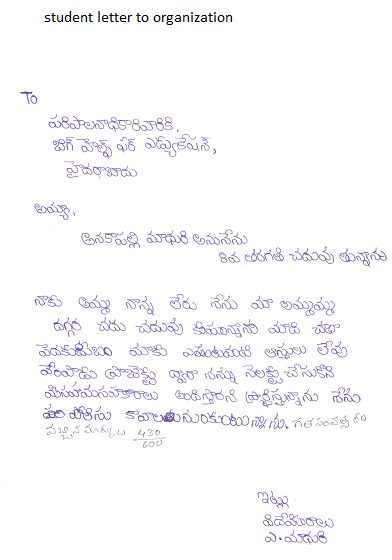 student letter to organization
To
పరిపాలనాధికారివారికి,
బిగ్ హెల్ప్ ఫర్ ఎడ్యుకేషన్,
హైదరాబాదు
అయ్యా,
అనకాపల్లి మాధురి అనునేను
8వ తరగతి చదువు తున్నాను
నాకు అమ్మ నాన్న లేరు నేను మా అమ్మమ్మ
దగ్గర చదువు మాది చాలా
మాకు ఎటువంటి ఆస్తులు లేవు
ప్రాజెక్ట్ ద్వారా నన్ను సెలక్ట్ చేసుకొని
అందిస్తారని ప్రార్థిస్తున్నాను నేను
పోలీసు
వచ్చిన మార్కులు 430/600 గత సంవత్స
ఇట్లు
విధేయురాలు
ఎ. మాధురి